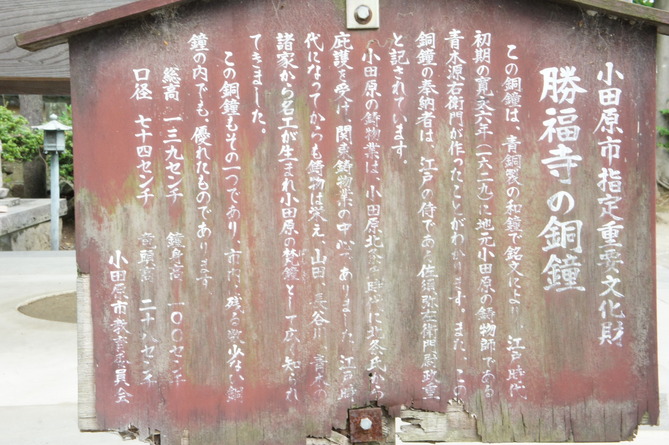 小田原市指定重要文化財
勝福寺の銅鐘
この銅鐘は、青銅製の和鐘で銘文により、江戸時代
初期の寛永六年(一六二九)に地元小田原の鋳物師である
青木源右衛門が作ったことがわかります。また、この
銅鐘の奉納者は、江戸の侍である佐須弥左衛門尉政重
と記されています。
小田原の鋳物業は、小田原北条氏時代に北条氏から
庇護を受け、関東鋳物業の中心でありました。江戸時
代になってからも鋳物は栄え、山田、長谷川、青木の
諸家から名工が生まれ小田原の梵鐘として広く知られ
てきました。
この銅鐘もその一つであり、市内に残る数少ない銅
鐘の内でも、優れたものであります
総高 一三九センチ 鐘身高 一〇〇センチ
口径 七十四センチ 竜頭高 二十八センチ
小田原市教育委員会